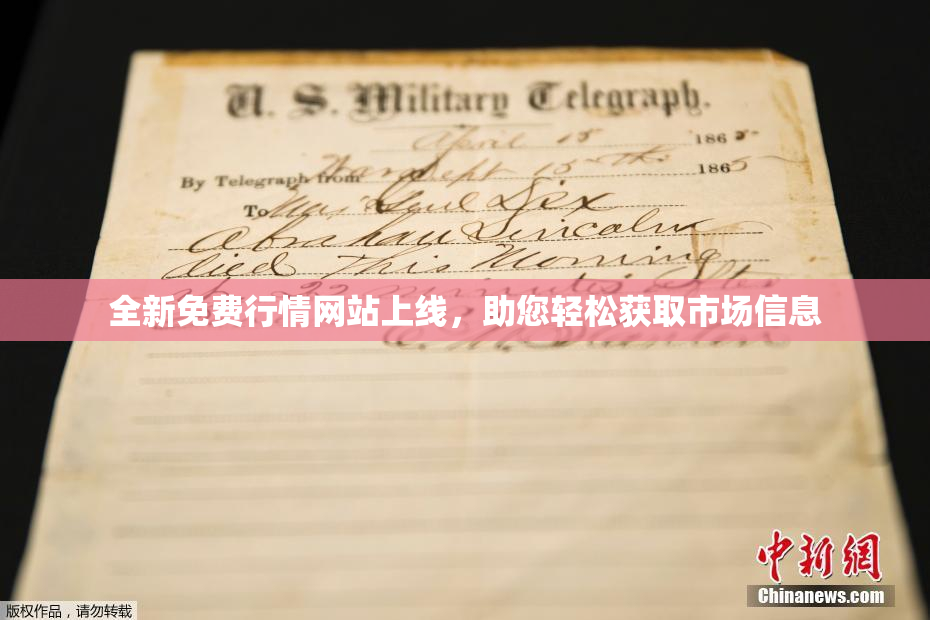 U. S. Military Telegraph.
April 15 1865
By Telegraph from War Dept 15th 1865
To Maj Genl Dix
Abraham Lincoln
died This Morning
22 minutes after
全新免费行情网站上线，助您轻松获取市场信息
E. M. Stanton
中新网
版权作品，请勿转载
Chinanews.com